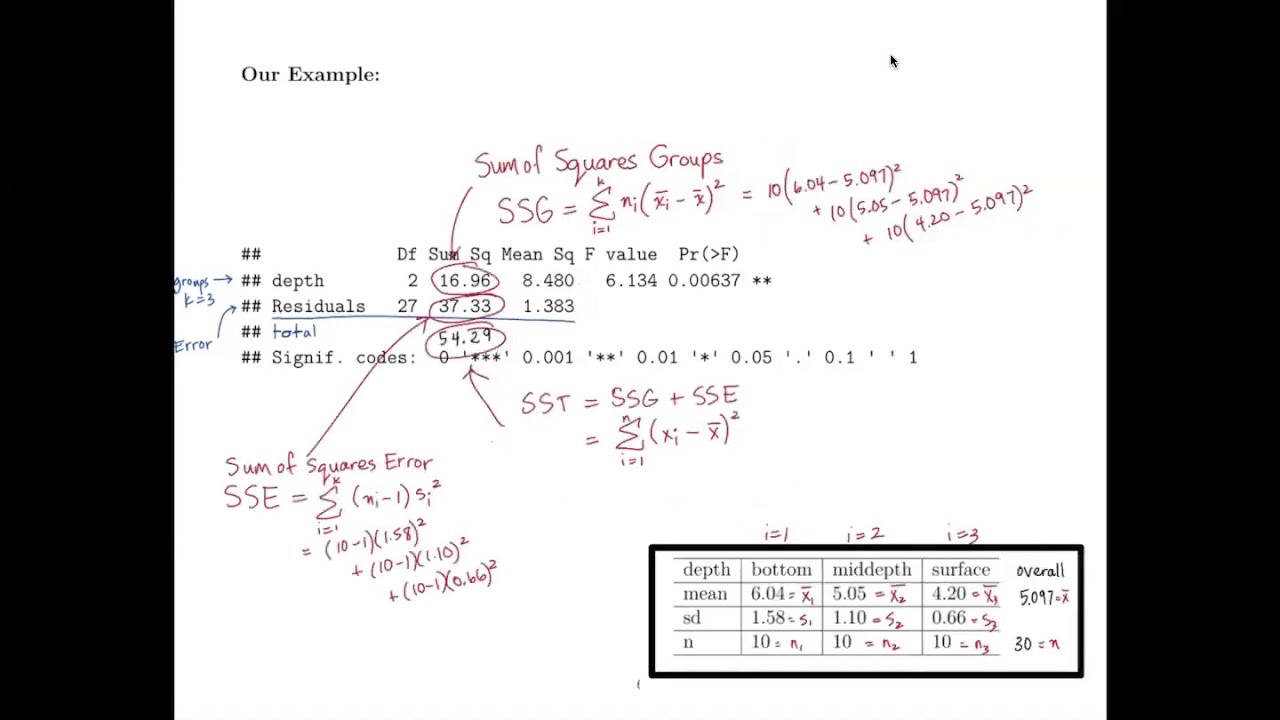 Our Example:
Sum of Squares Groups
SSG = Σ_{i=1}^{k} nᵢ(x̄ᵢ - x̄)² = 10(6.04 - 5.097)²
+ 10(5.05 - 5.097)²
+ 10(4.20 - 5.097)²
## Df Sum Sq Mean Sq F value Pr(>F)
groups → ## depth 2 16.96 8.480 6.134 0.00637 **
k=3
## Residuals 27 37.33 1.383
Error
## total 54.29
## Signif. codes: 0 '***' 0.001 '**' 0.01 '*' 0.05 '.' 0.1 ' ' 1
SST = SSG + SSE
= Σ_{i=1}^{n} (xᵢ - x̄)²
Sum of Squares Error
SSE = Σ_{i=1}^{k} (nᵢ-1) sᵢ²
= (10-1)(1.58)²
+ (10-1)(1.10)²
+ (10-1)(0.66)²
i=1 i=2 i=3
depth bottom middepth surface overall
mean 6.04 = x̄₁ 5.05 = x̄₂ 4.20 = x̄₃ 5.097 = x̄
sd 1.58 = s₁ 1.10 = s₂ 0.66 = s₃
n 10 = n₁ 10 = n₂ 10 = n₃ 30 = n